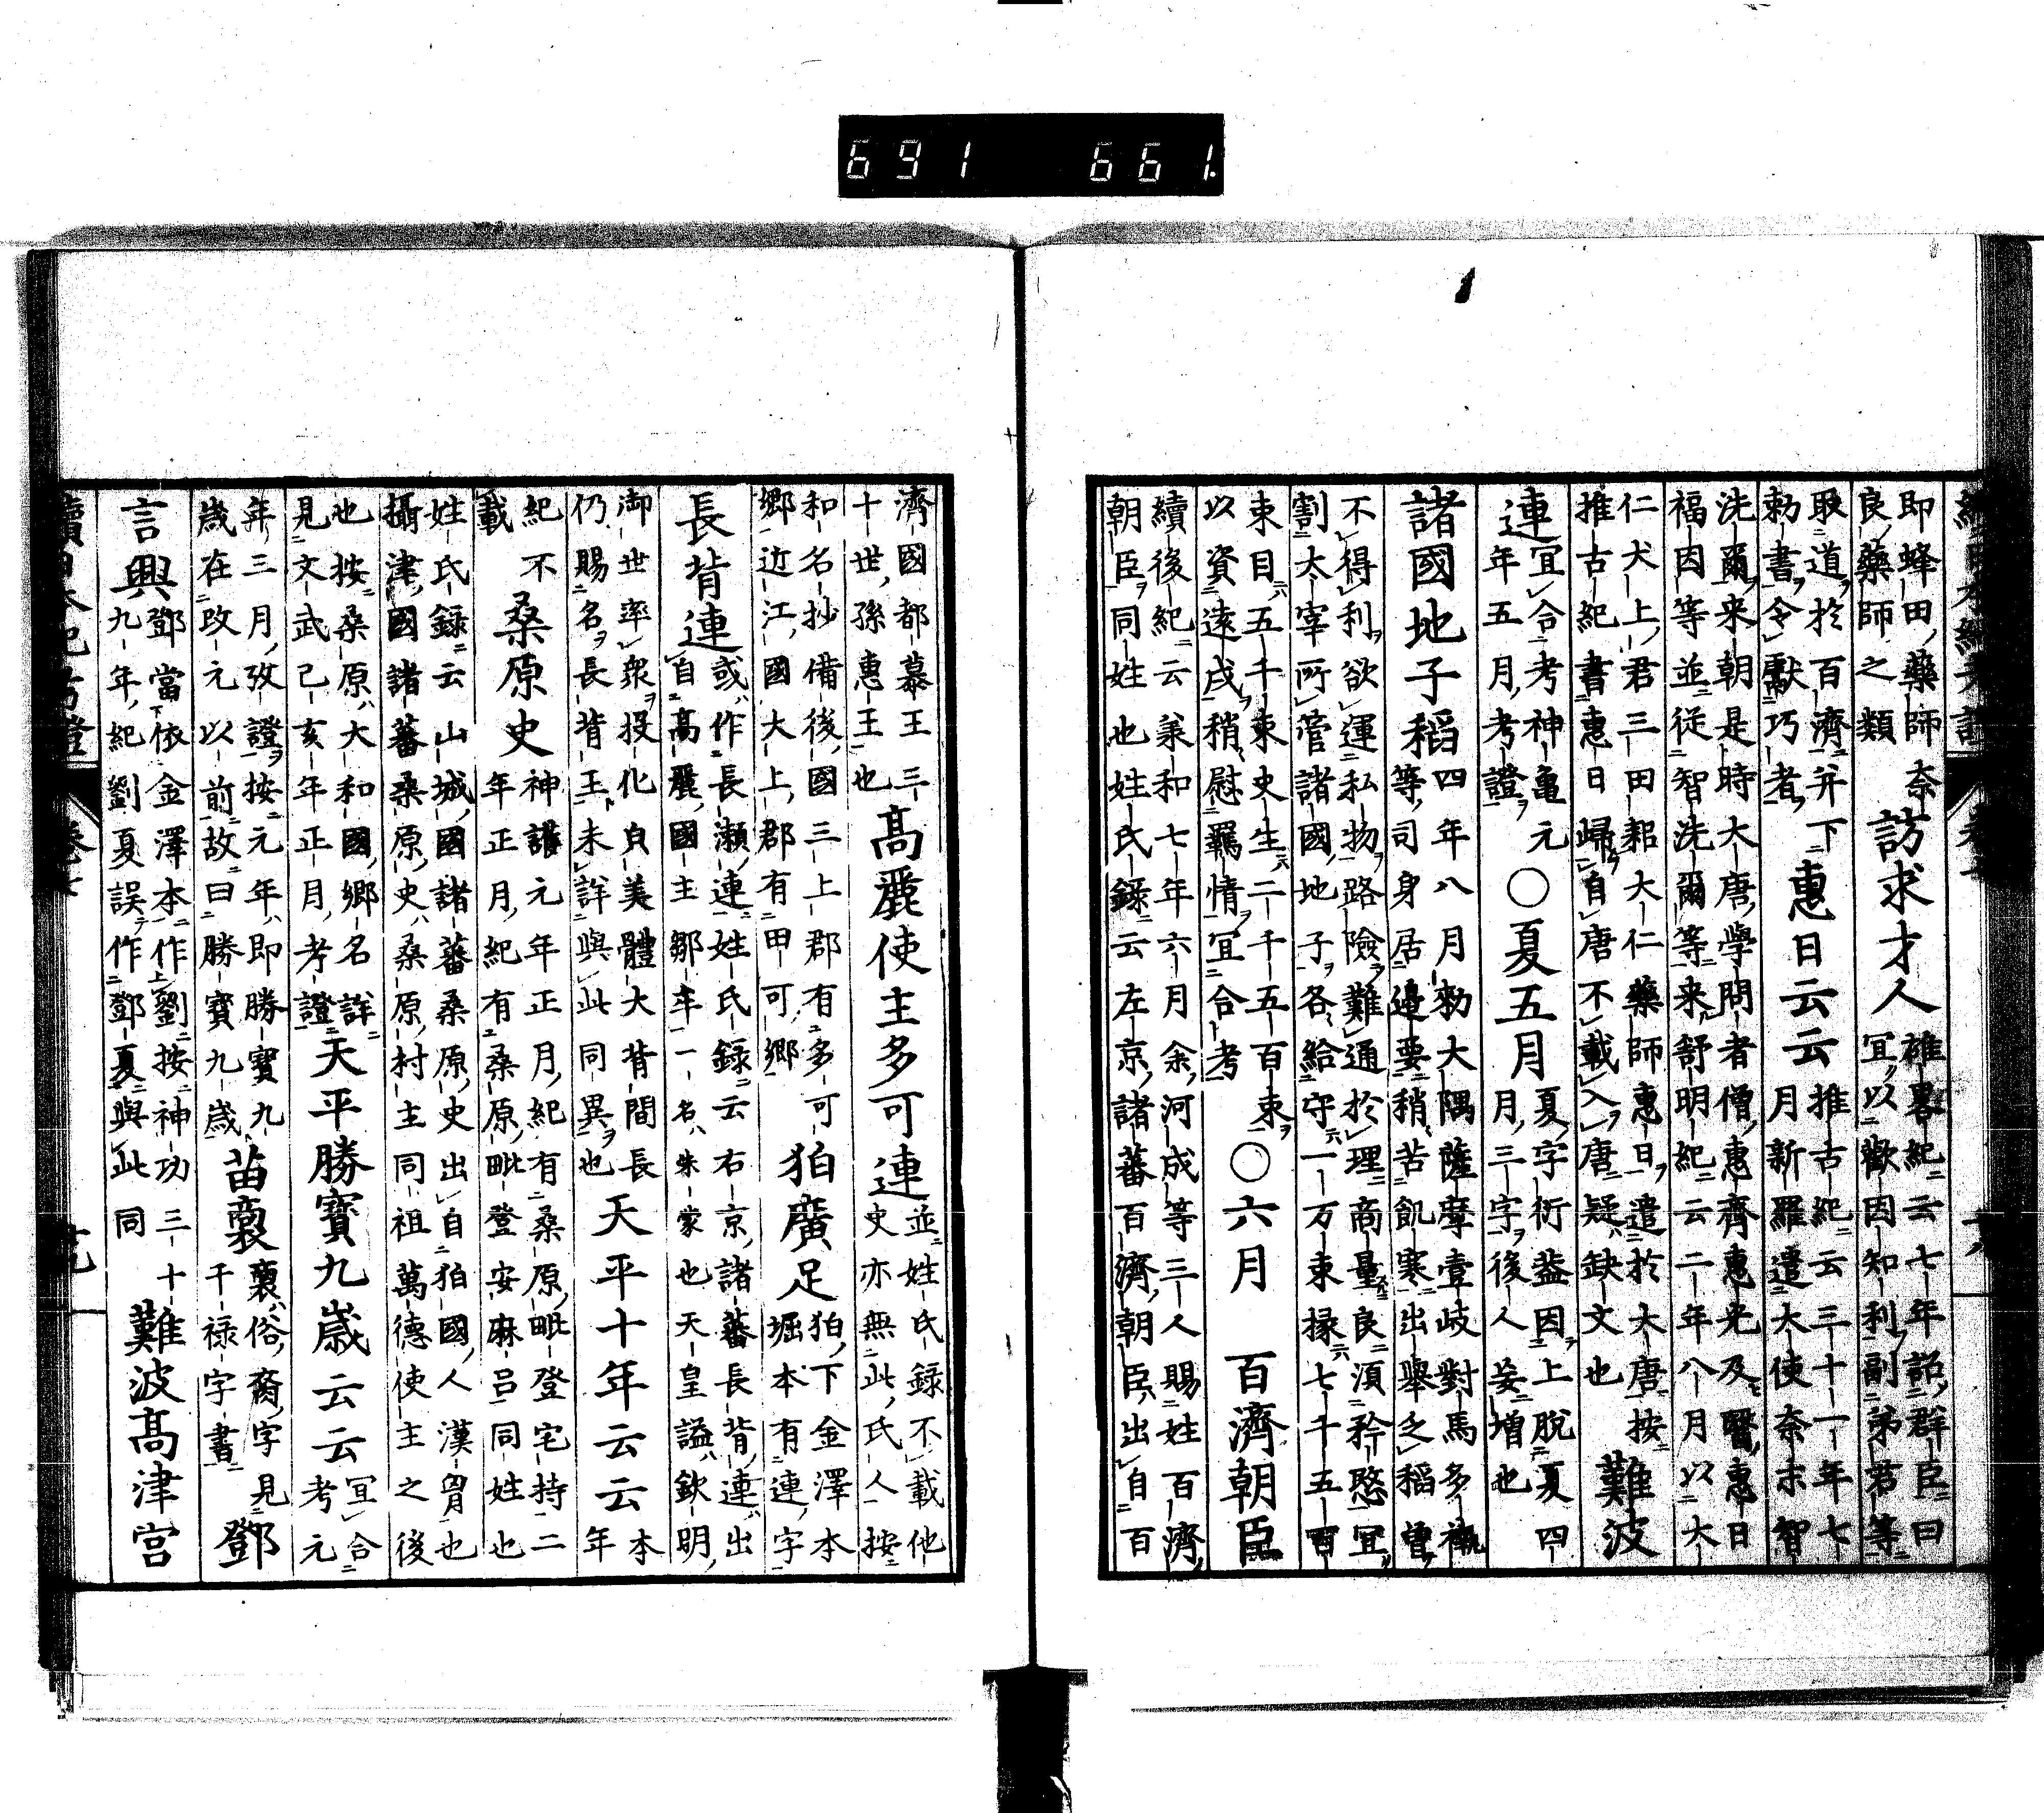 691 661.
即蜂田藥師奈
良藥師之類
訪求才人
雄畧紀云七年詔群臣曰
宜以歡因知利副弟君等
取道於百濟并下
勅書令獻巧者
惠日云云
推古紀云三十一年七
月新羅遣大使奈末智
洗爾来朝是時大唐學問者僧惠齊惠光及醫惠日
福因等並從智洗爾等来舒明紀云二年八月以大
仁犬上君三田耜大仁藥師惠日遣於大唐按
推古紀書惠日歸自唐不載入唐疑缺文也
難波
連
宜合考神亀元
年五月考證
○夏五月
夏字衍蓋因上脫夏四
月三字後人妄増也
諸國地子稻
四年八月勅大隅薩摩壹岐對馬多褹
等司身居邊要稍苦飢寒出舉乏稻曾
不得利欲運私物路險難通於理商量良須矜愍宜
割太宰所管諸國地子各給守一万束掾七千五百
束目五千束史生二千五百束
以資遠戍稍慰羈情宜合考
○六月
百濟朝臣
續後紀云兼和七年六月余河成等三人賜姓百濟
朝臣同姓也姓氏録云左京諸蕃百濟朝臣出自百
濟國都慕王三
十世孫惠王也
高麗使主多可連
並姓氏録不載他
史亦無此氏人按
和名抄備後國三上郡有多可
郷近江國大上郡有甲可郷
狛廣足
狛下金澤本
堀本有連字
長背連
或作長瀬連姓氏録云右京諸蕃長背連出
自高麗國主鄒牟一名朱蒙也天皇謚欽明
御世率衆投化皃美體大背間長
仍賜名長背王未詳與此同異也
天平十年云云
本
年
紀不
載
桑原史
神護元年正月紀有桑原毗登宅持二
年正月紀有桑原毗登安麻呂同姓也
姓氏録云山城國諸蕃桑原史出自狛國人漢胄也
攝津國諸蕃桑原史桑原村主同祖萬德使主之後
也按桑原大和國郷名詳
見文武己亥年正月考證
天平勝寶九歳云云
宜合
考元
年三月攷證按元年即勝寶九
歳在改元以前故曰勝寶九歳
苗裛
裛俗裔字見
千禄字書
鄧
言興
鄧當依金澤本作劉按神功三十
九年紀劉夏誤作鄧夏與此同
難波髙津宮